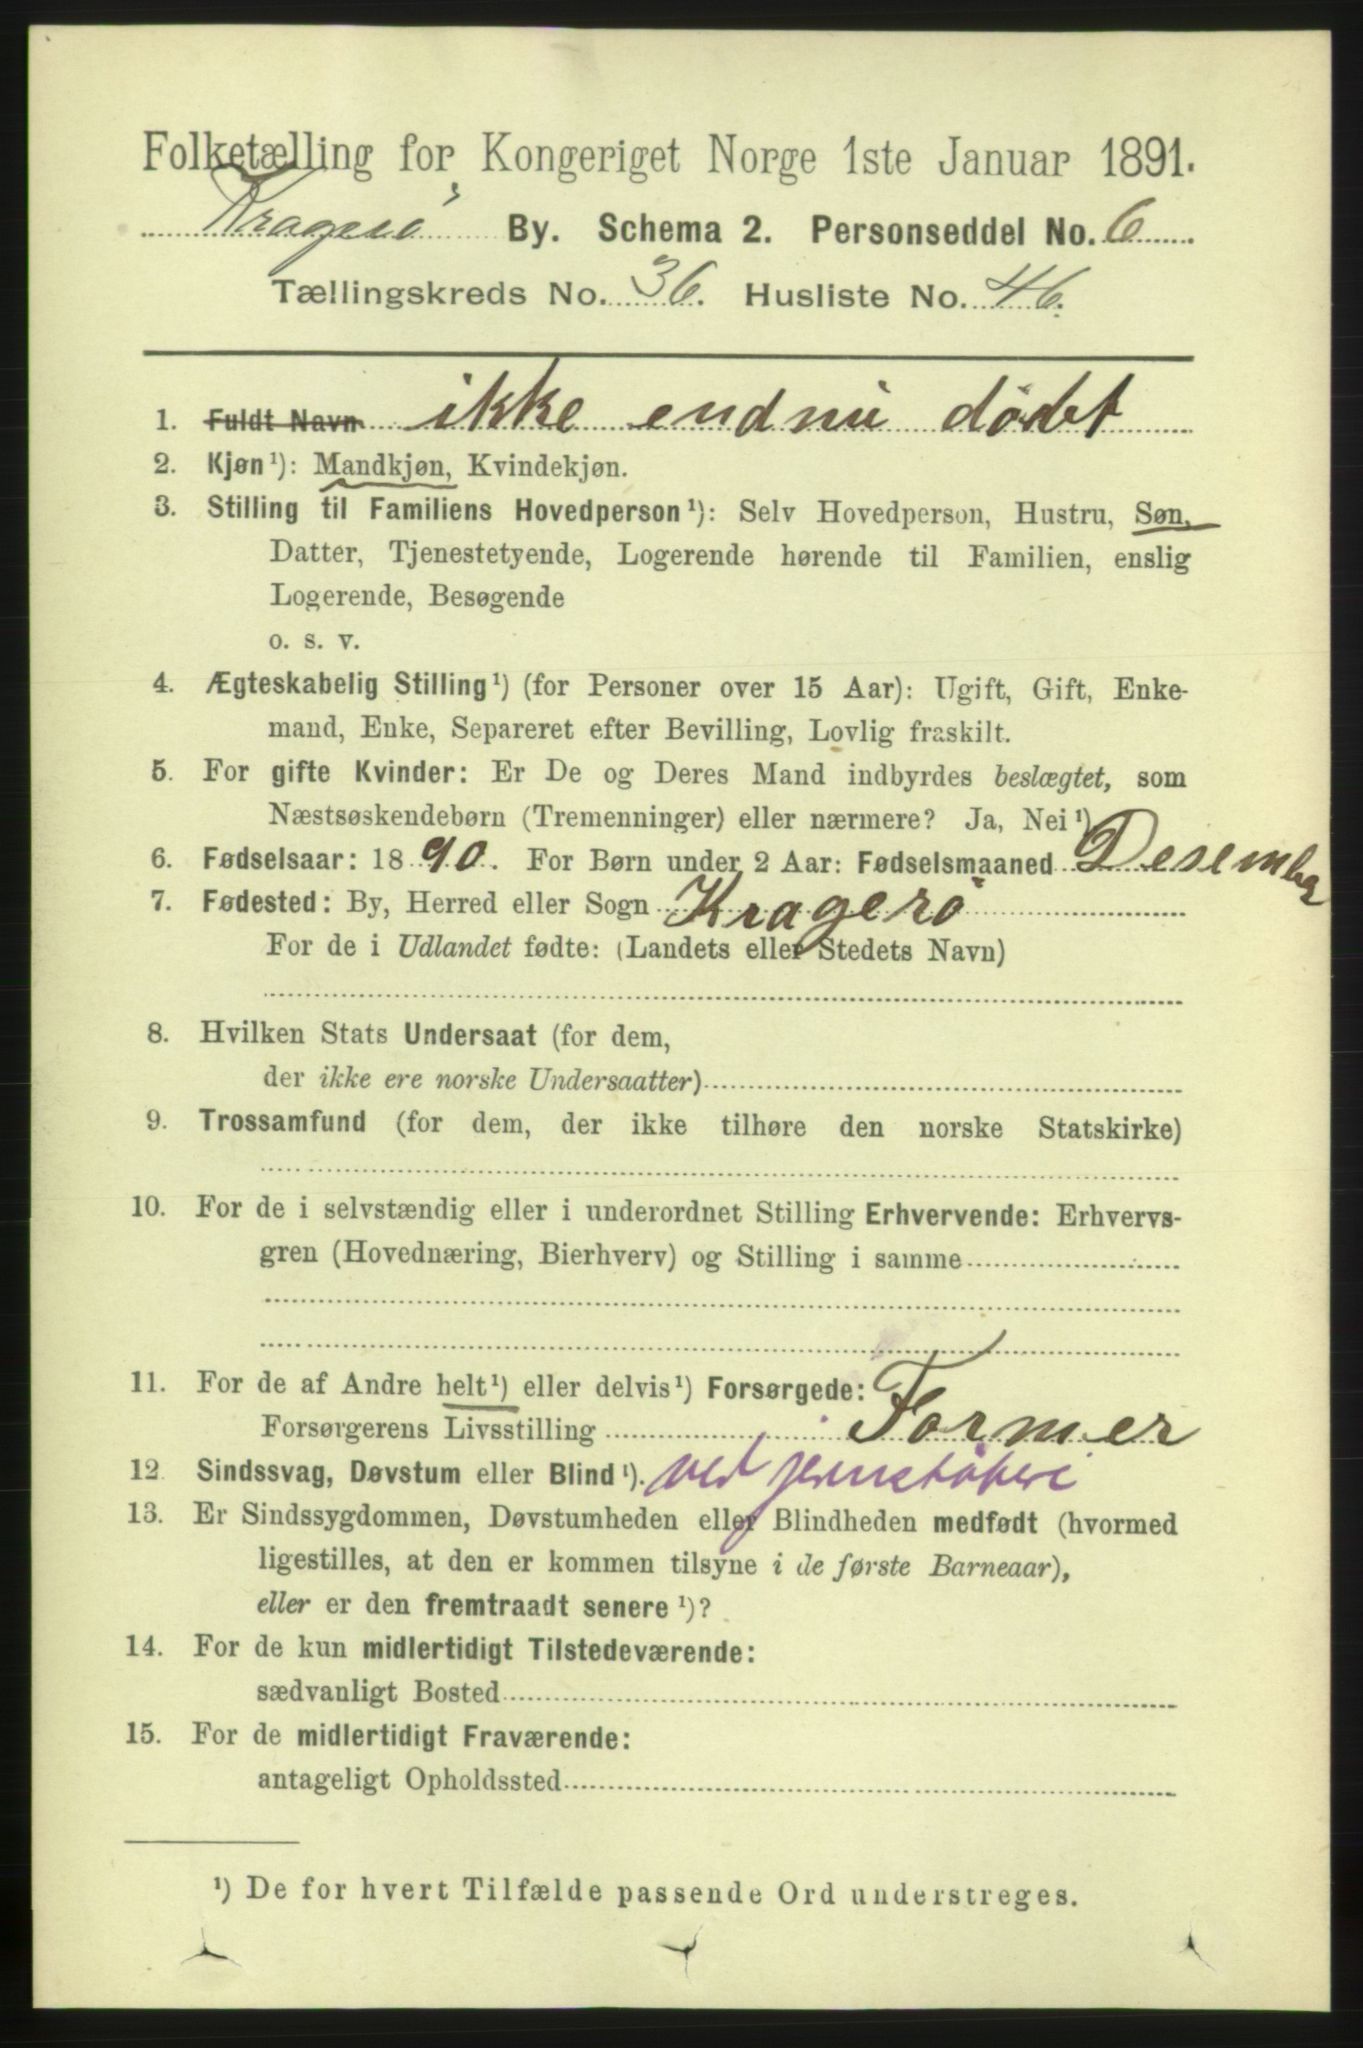 Folketælling for Kongeriget Norge 1ste Januar 1891.
Kragerø By. Schema 2. Personseddel No. 6
Tællingskreds No. 36. Husliste No. 46.
1. Fuldt Navn ikke endnu døbt
2. Kjøn¹): Mandkjøn, Kvindekjøn.
3. Stilling til Familiens Hovedperson¹): Selv Hovedperson, Hustru, Søn,
Datter, Tjenestetyende, Logerende hørende til Familien, enslig
Logerende, Besøgende
o. s. v.
4. Ægteskabelig Stilling¹) (for Personer over 15 Aar): Ugift, Gift, Enke-
mand, Enke, Separeret efter Bevilling, Lovlig fraskilt.
5. For gifte Kvinder: Er De og Deres Mand indbyrdes beslægtet, som
Næstsøskendebørn (Tremenninger) eller nærmere? Ja, Nei¹)
6. Fødselsaar: 1890. For Børn under 2 Aar: Fødselsmaaned Desember
7. Fødested: By, Herred eller Sogn Kragerø
For de i Udlandet fødte: (Landets eller Stedets Navn)
8. Hvilken Stats Undersaat (for dem,
der ikke ere norske Undersaatter)
9. Trossamfund (for dem, der ikke tilhøre den norske Statskirke)
10. For de i selvstændig eller i underordnet Stilling Erhvervende: Erhvervs-
gren (Hovednæring, Bierhverv) og Stilling i samme
11. For de af Andre helt¹) eller delvis¹) Forsørgede:
Forsørgerens Livsstilling Former
12. Sindssvag, Døvstum eller Blind¹). ved jernstøberi
13. Er Sindssygdommen, Døvstumheden eller Blindheden medfødt (hvormed
ligestilles, at den er kommen tilsyne i de første Barneaar),
eller er den fremtraadt senere¹)?
14. For de kun midlertidigt Tilstedeværende:
sædvanligt Bosted
15. For de midlertidigt Fraværende:
antageligt Opholdssted
¹) De for hvert Tilfælde passende Ord understreges.